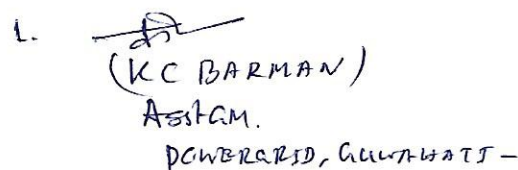 1.
(KC BARMAN)
Asst GM.
POWERGRID, GUWAHATI -